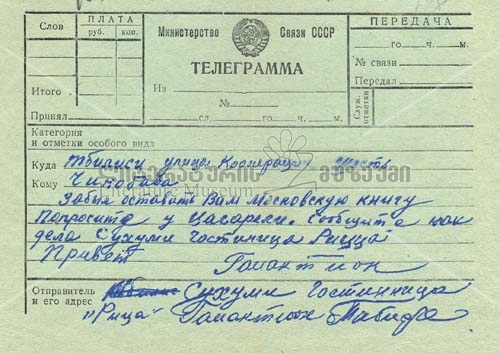 Слов
ПЛАТА
руб. коп.
Итого
Принял
Министерство Связи СССР
ТЕЛЕГРАММА
Из
№
сл. го ч. м.
ПЕРЕДАЧА
го ч. м.
№ связи
Передал
Служ. отметки
Категория
и отметки особого вида
Куда Тбилиси улица шесть
Кому Чикобава
ლიტერატურის მუზეუმი
Literature Museum
Забыл оставить Вам Московскую книгу
Попросите у Цагарели. Сообщите как
дела Сухуми Гостиница Рицца
Привет Галактион
Отправитель Сухуми Гостинница
и его адрес "Рица" Галактион Табидзе